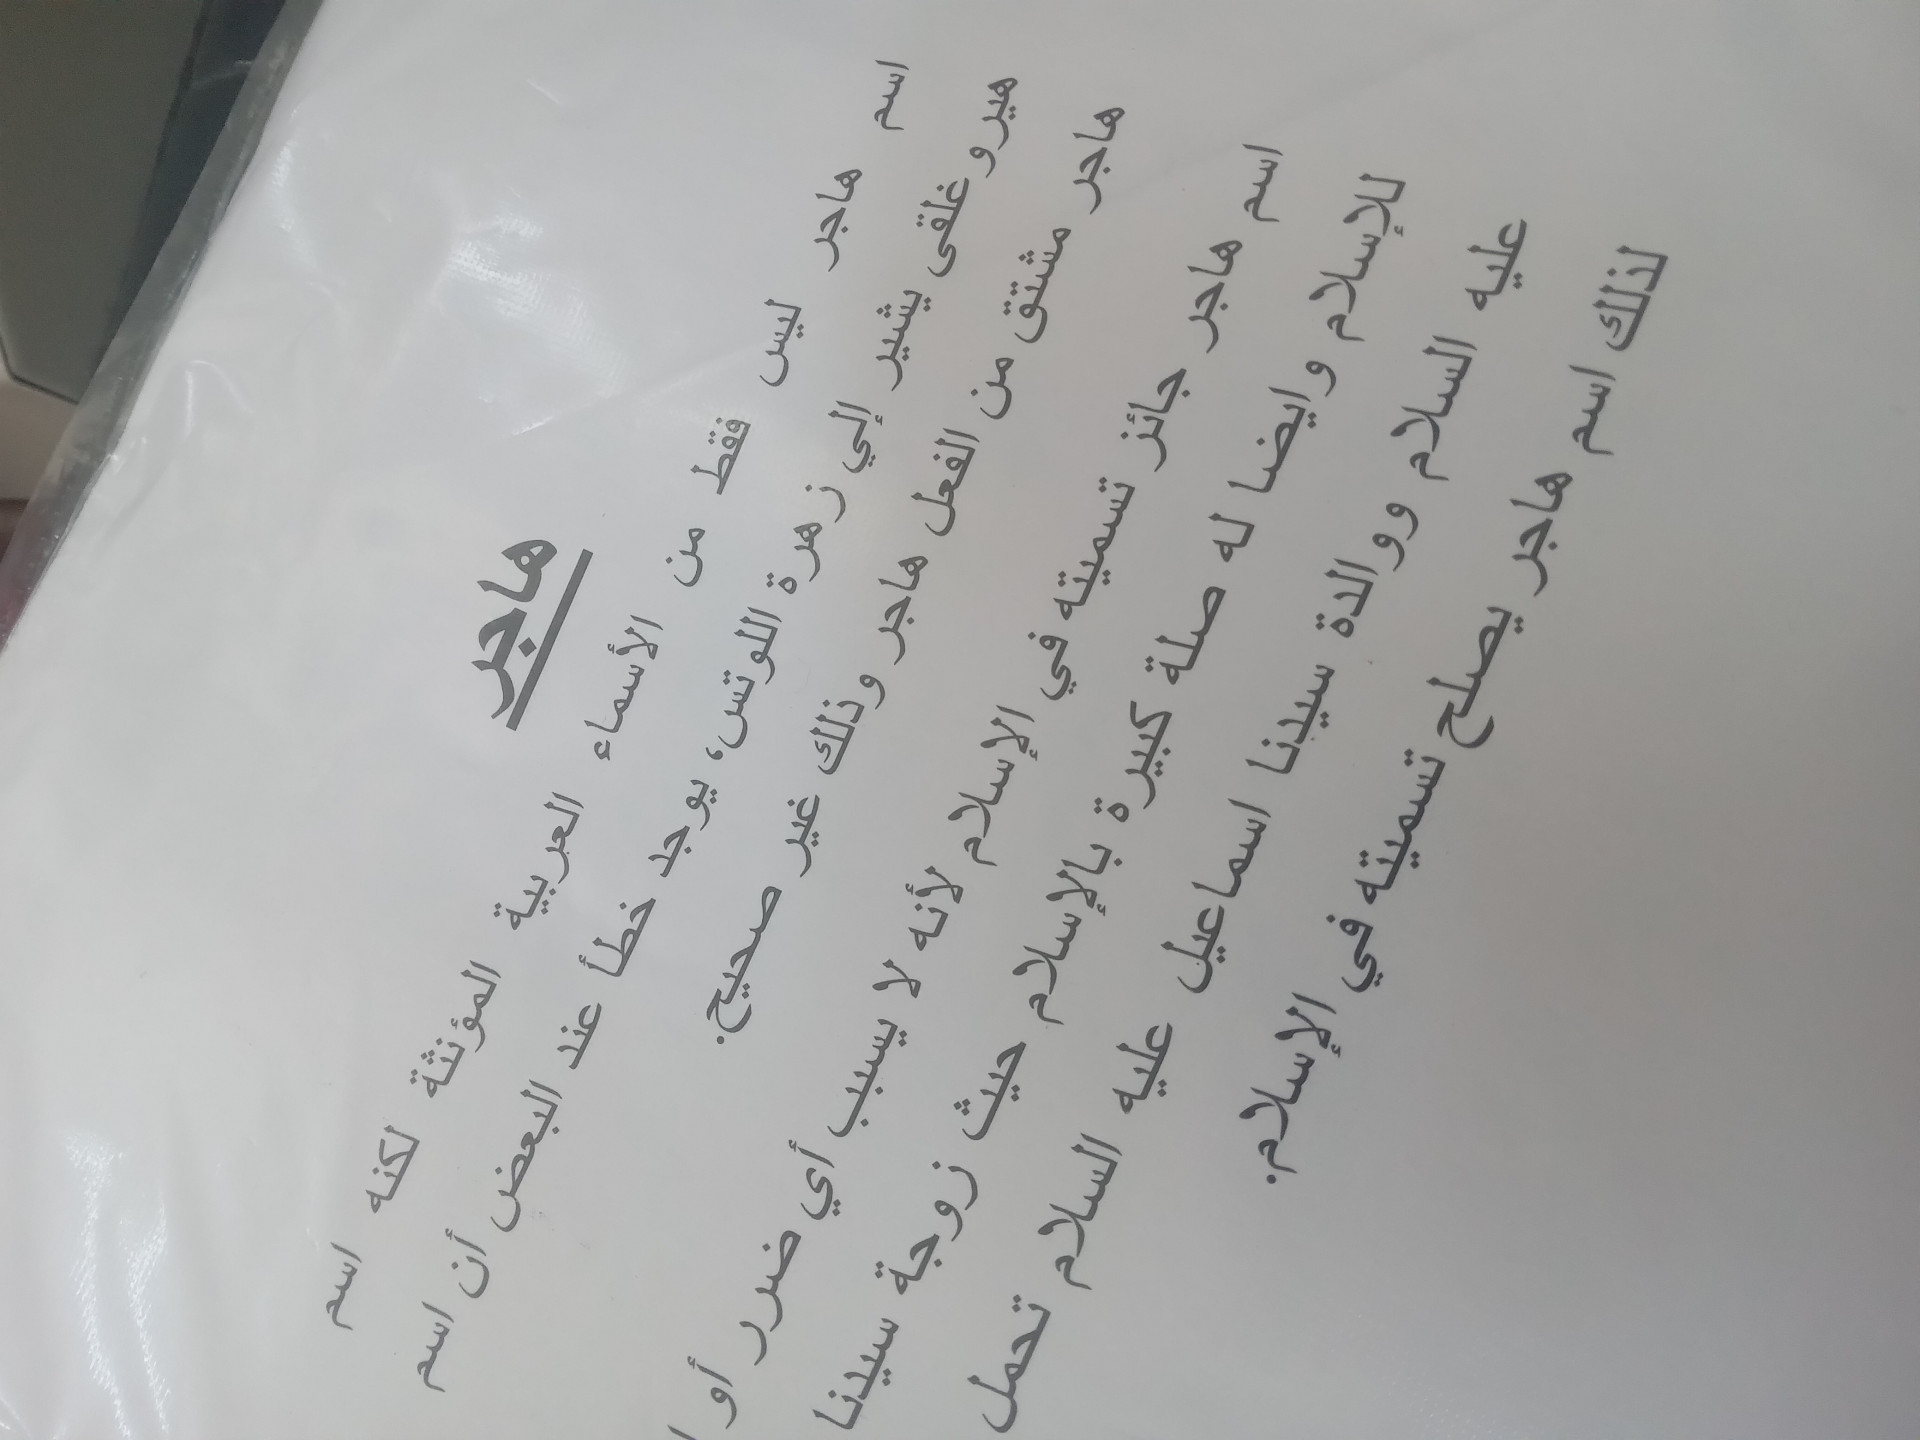 هاجر
اسم هاجر ليس فقط من الأسماء العربية المؤنثة لكنه اسم
هيروغلقى يشير إلي زهرة اللوتس، يوجد خطأ عند البعض أن اسم
هاجر مشتق من الفعل هاجر وذلك غير صحيح.
اسم هاجر جائز تسميته في الإسلام لأنه لا يسبب أي ضرر أو
للإسلام وايضا له صلة كبيرة بالإسلام حيث زوجة سيدنا
عليه السلام ووالدة سيدنا اسماعيل عليه السلام تحمل
لذلك اسم هاجر يصلح تسميته في الإسلام.